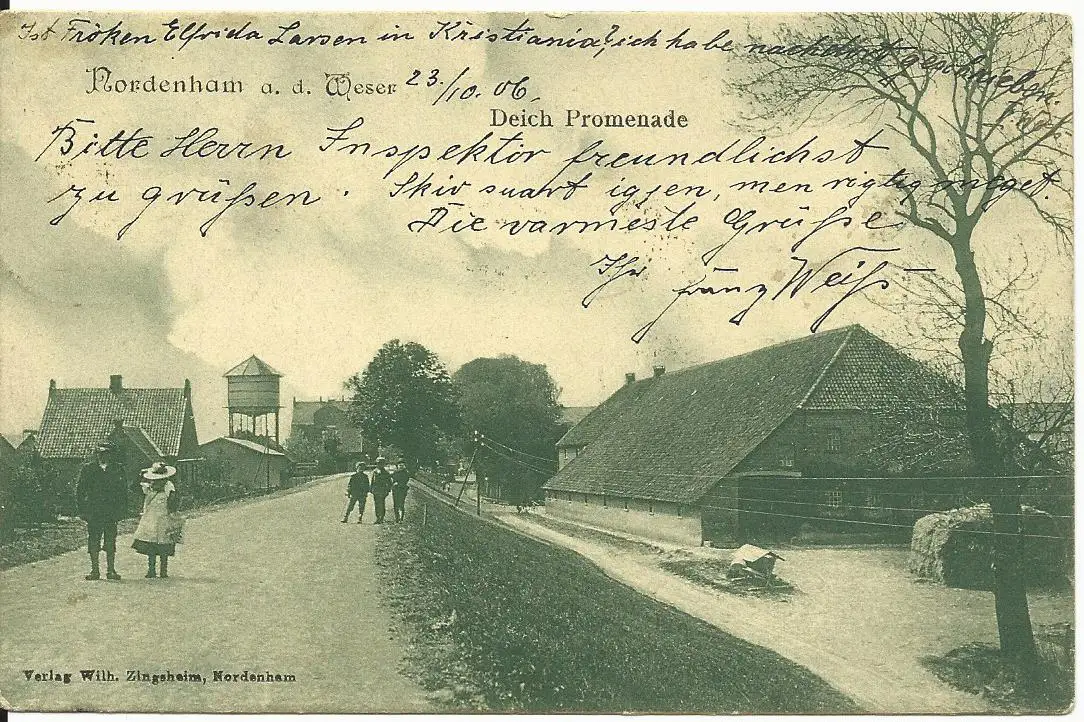 Ist Fröken Elfrida Larsen in Kristiania? ich habe nach dort geschrieben.
Nordenham a. d. Weser 23/10. 06.
Deich Promenade
Bitte Herrn Inspektor freundlichst
zu grüßen. Skiv snart igjen, men rigtig meget.
Die varmeste Grüße
Ihr Franz Weiß
Verlag Wilh. Zingsheim, Nordenham